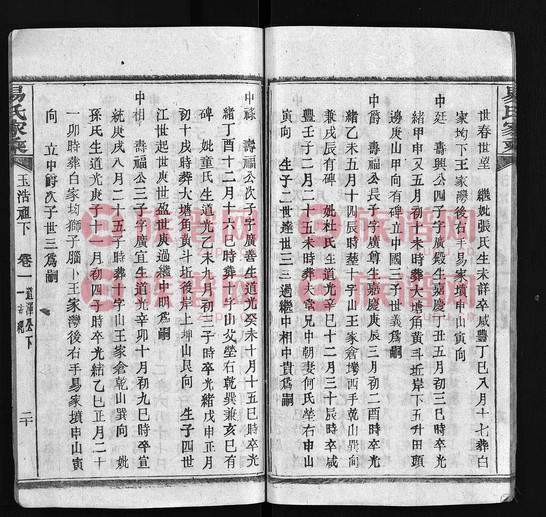 世春世堃　繼妣張氏生未詳卒咸豐丁巳八月十七葬白
家均下王家灣後右手易家墳申山寅向
中廷　壽興公四子字廣殿生嘉慶丁丑五月初三巳時卒光
緒甲申又五月初十未時葬大塘角黃斗坵岸下五升田頭
邊庚山甲向有碑立中國三子世義爲嗣
中爵　壽福公長子字廣尊生嘉慶庚辰三月初二酉時卒光
緒乙未五月十四辰時葬十字山王家倉塝西手乾山巽向
兼戌辰有碑　妣杜氏生道光辛巳十二月三十辰時卒咸
豐壬子二月二十五未時葬大堂兄中朝妻何氏塋右申山
寅向　生子二世達世三三過繼中相中貴爲嗣
中祿　壽福公次子字廣善生道光癸未十月十五巳時卒光
緒丁酉十二月十六巳時葬十字山父塋右乾巽兼亥巳有
碑　妣童氏生道光乙未九月初三子時卒光緒戊申正月
初十戌時葬大塘角黃斗坵後岸上坤山艮向　生子四世
江世起世洪世盈世庚過繼中國爲嗣
中相　壽福公三子字廣宜生道光辛卯十月初九巳時卒宣
統庚戌八月二十五子時葬十字山王家倉乾山巽向　妣
孫氏生道光庚子十一月初四子時卒光緒乙巳正月二十
一卯時葬白家均獅子腦下王家灣後右手易家墳申山寅
向　立中爵次子世三爲嗣
易氏家乘
玉浩祖下　卷一
二十
族譜网